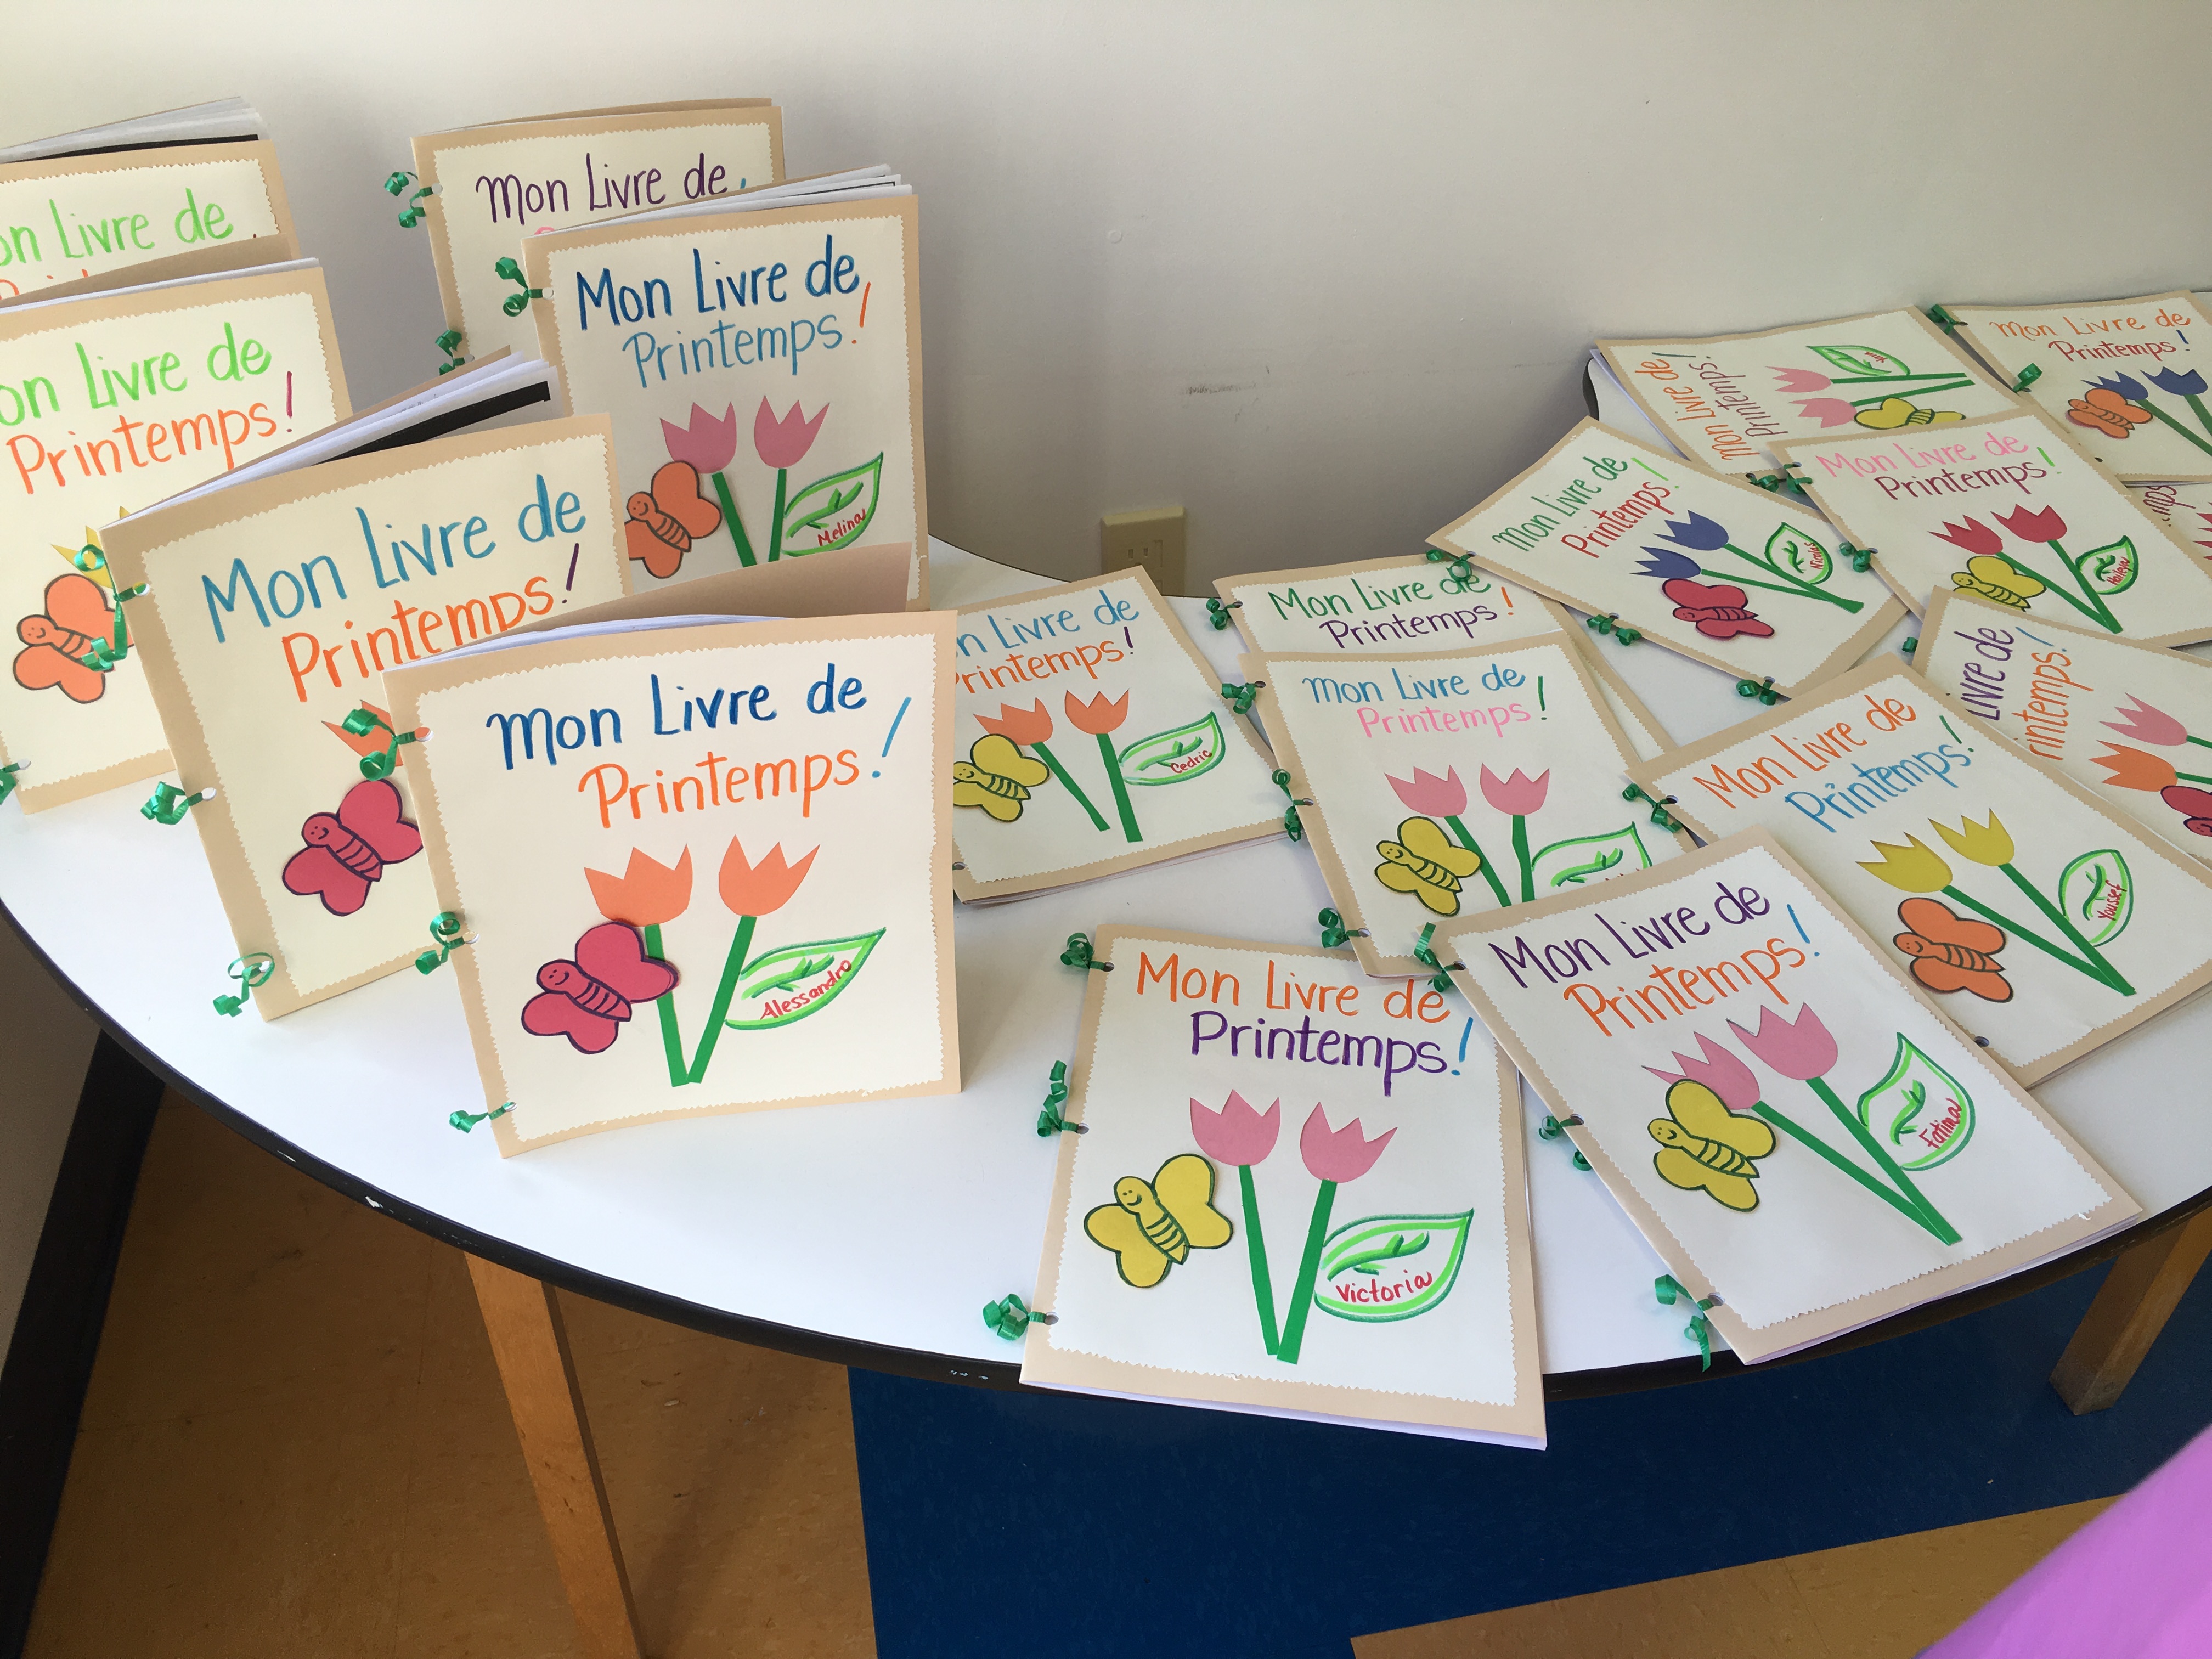 on Livre de
on Livre de
Printemps!
Mon Livre de
Mon Livre de
Printemps!
Melina
Mon Livre de
Printemps!
Mon Livre de
Printemps!
Alessandro
n Livre de
rintemps!
Cedric
Mon Livre de
Printemps!
Mon Livre de
Printemps!
Mon Livre de
Printemps!
Victoria
Mon Livre de
Printemps!
Fatima
Mon Livre de
Printemps!
Youssef
Mon Livre de
Printemps!
Nicolas
Mon Livre de
Printemps!
Mon Livre de
Printemps!
Mon Livre de
Printemps!
Livre de
rintemps!
mps